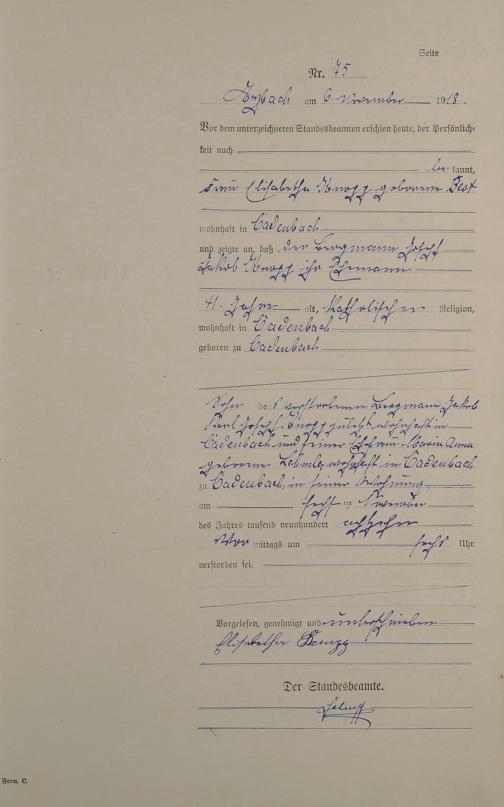 Seite
Nr. 75
Arzbach am 6. November 1918.
Vor dem unterzeichneten Standesbeamten erschien heute, der Persönlich-
keit nach
be kannt,
Frau Elisabetha Knopp geborene Best
wohnhaft in Cadenbach
und zeigte an, daß der Bergmann Josef
Jakob Knopp ihr Ehemann
41. Jahre alt, katholischer Religion,
wohnhaft in Cadenbach
geboren zu Cadenbach
Sohn des verstorbenen Bergmann Jakob
Karl Josef Knopp zuletzt wohnhaft in
Cadenbach und seiner Ehefrau Maria Anna
geborene wohnhaft in Cadenbach
zu Cadenbach, in seiner Wohnung
am sechs ten November
des Jahres tausend neunhundert achtzehn
Vor mittags um sechs Uhr
verstorben sei.
Vorgelesen, genehmigt und unterschrieben
Elisabetha Knopp
Der Standesbeamte.
Form. C.